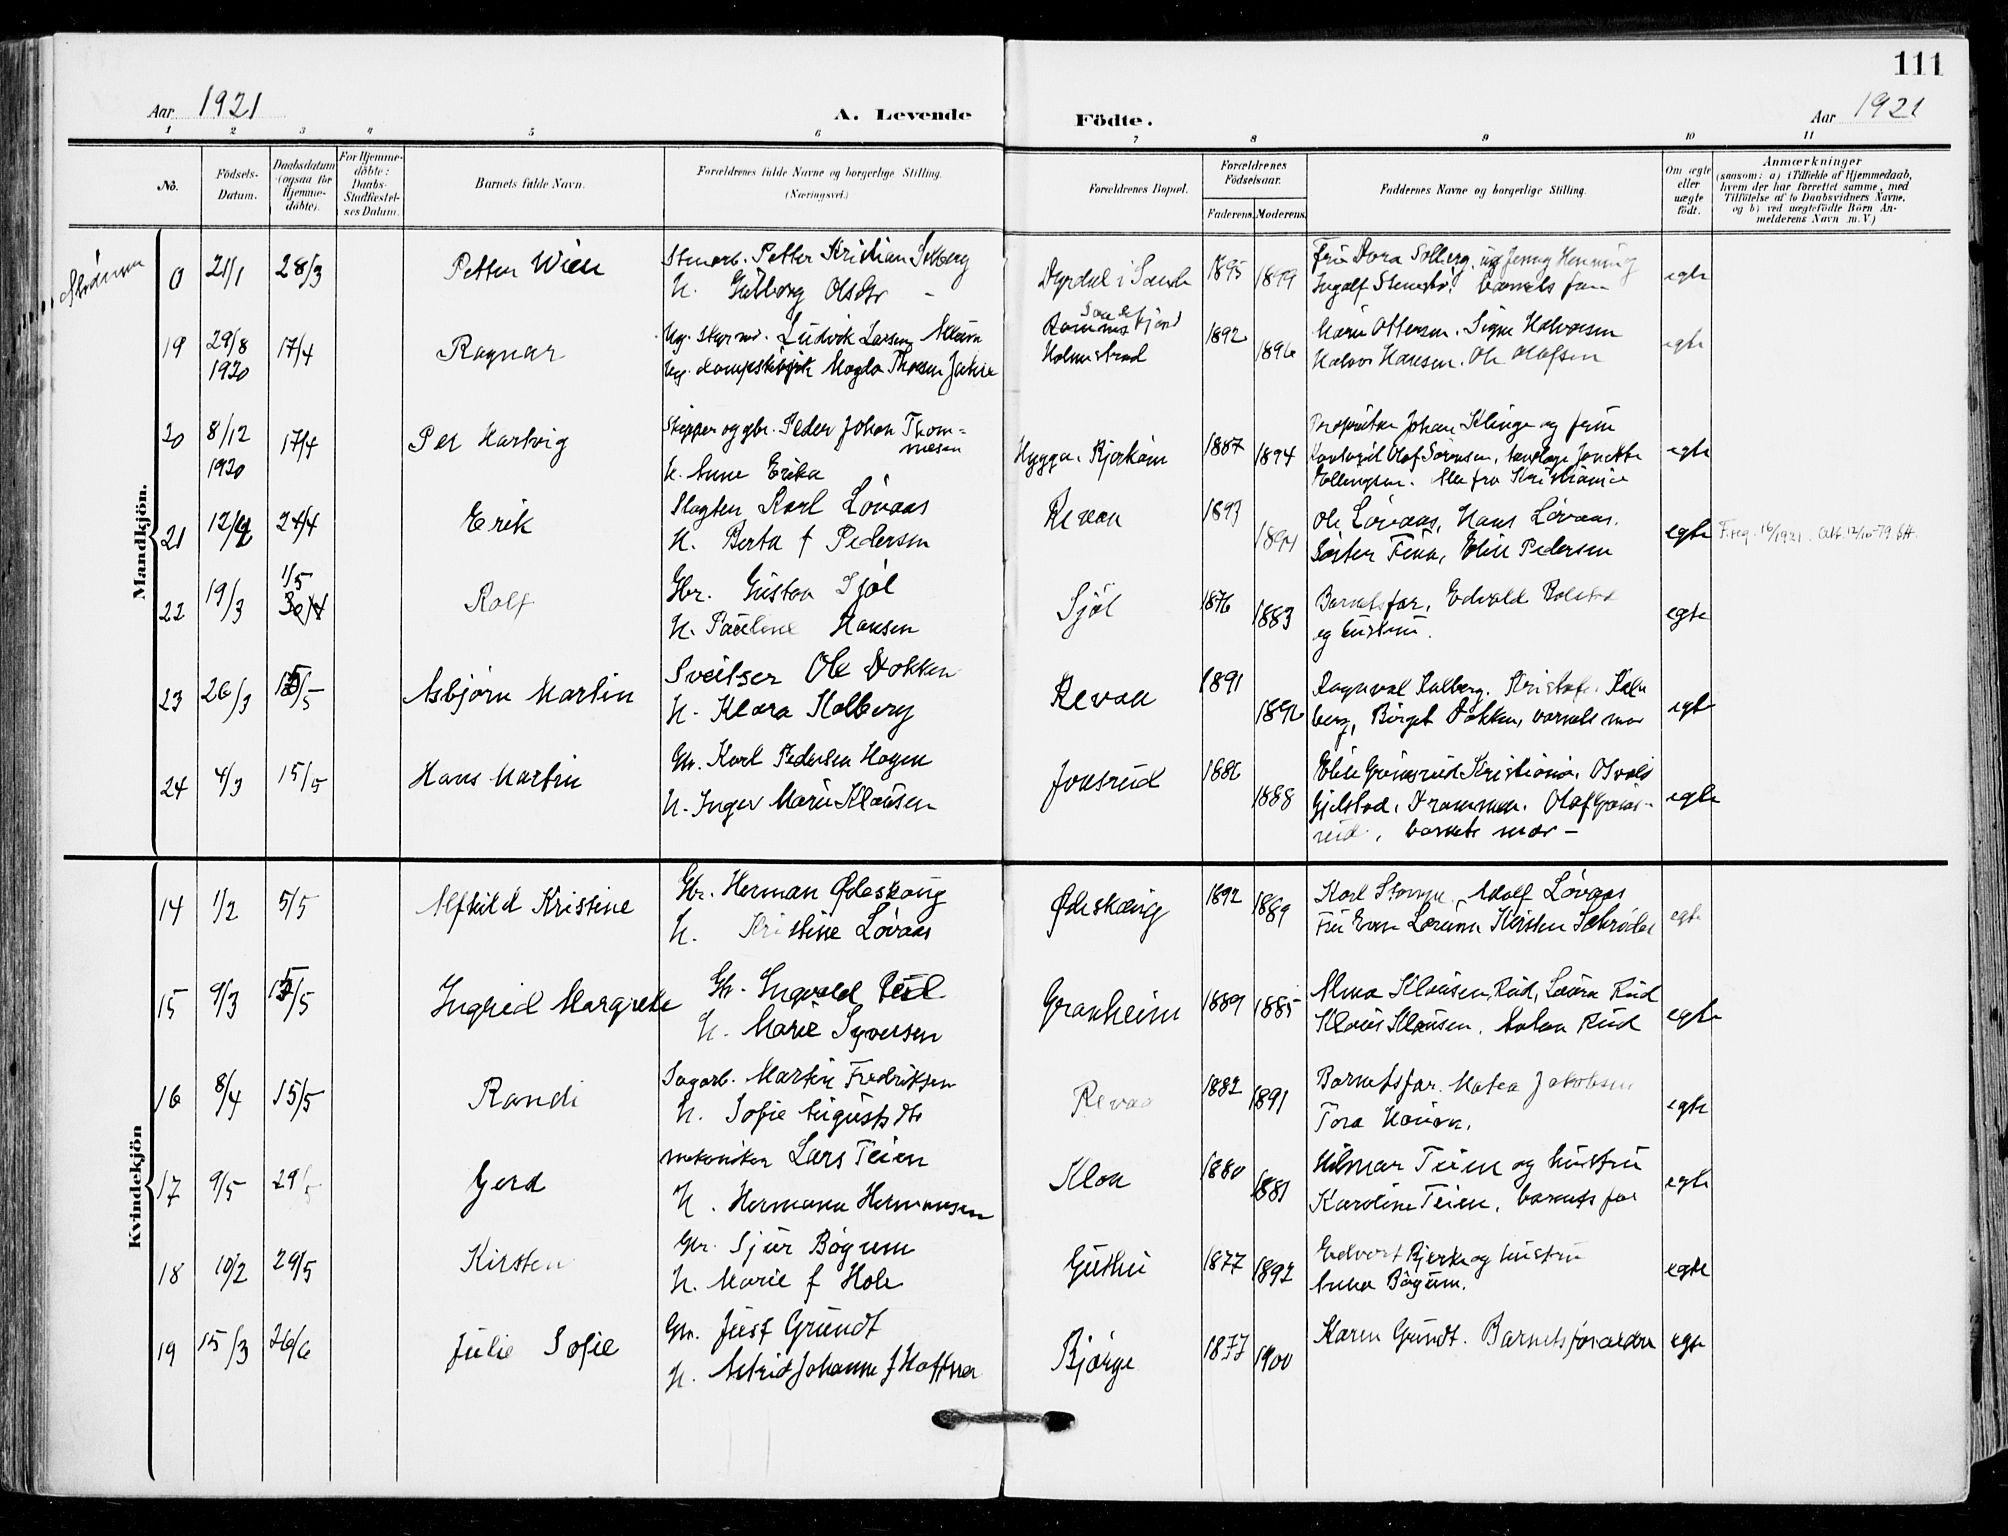 111
Aar 1921
A. Levende Födte.
Aar 1921
1 2 3 4 5 6 7 8 9 10 11
No.
Födsels-
Datum.
Daabsdatum
(ogsaa för
Hjemme-
döbte).
For Hjemme-
döbte:
Daabs-
Stadfæstel-
ses Datum.
Barnets fulde Navn.
Forældrenes fulde Navne og borgerlige Stilling.
(Næringsvei.)
Forældrenes Bopæl.
Forældrenes
Födselsaar.
Faderens. Moderens.
Faddernes Navne og borgerlige Stilling.
Om ægte
eller
uægte
födt.
Anmærkninger
(saasom: a) i Tilfælde af Hjemmedaab,
hvem der har forrettet samme, med
Tilföielse af to Daabsvidners Navne,
og b) ved uægtefödte Börn An-
melderens Navn m. V.)
Mandkjön.
Strömm
0 21/1 28/3 Petter Wien
Petter Kristian Solberg
H. Gülborg Olsdtr
i Sande 1895 1899
Fru Dora Solberg, Jenny Henning
barnets far
egte
19 29/8 1920 17/4 Ragnar
Ludvik Larsen
Magda Thorsen
Holmestrand 1892 1896
Marie Ottersen. Signe Halvorsen
Halvor Hansen. Ole Olafsen
egte
20 8/12 1920 17/4 Per Hartvig
Skipper og gbr. Peder Johan Thom-
mesen
H. Anne Erika
Hygga. 1887 1894
Johan Klinge og frue
Olaf Sörensen, Jonette
Ellingsen. Alle fra Kristiania
egte
21 24/4 Erik
Karl Lövaas
H. Berta f Pedersen
Revaa 1893 1894
Ole Lövaas, Hans Lövaas.
Söster Tina, Elise Pedersen
egte
22 19/3 1/5 Rolf
Gbr. Gustav Sjöl
H. Pauline Hansen
Sjöl 1876 1883
Barnets far, Edvald
og hustru.
egte
23 26/3 15/5 Asbjörn Martin
Sveitser Ole Dokken
H. Klara Kolberg
Revaa 1891 1896
Ragnval Kolberg. Kristofer Kol-
berg, Birgit Dokken, barnets mor
egte
24 4/3 15/5 Hans Martin
Gbr. Karl Pedersen Hagen
H. Inger Marie Klausen
Jonsrud 1886 1888
Elise Grimsrud Kristiania. Osvald
Gjelstad, Drammen. Olaf Grims-
rud, barnets mor –
egte
Kvindekjön
14 1/2 5/5 Alfhild Kristine
Gbr. Herman Ödeskaug
H. Kristine Lövaas
Ödeskaug 1892 1889
Karl Adolf Lövaas
Fru Kirsten Schröder
egte
15 9/3 15/5 Ingrid Margrete
Gbr. Ingvald Rud
H. Marie Syversen
Granheim 1889 1885
Alma Klausen, Rud, Laura Rud
Klaus Klausen. Anton Rud
egte
16 8/4 15/5 Randi
Sagarb. Martin Fredriksen
H. Sofie Augustsdtr
Revaa 1882 1891
Barnets far. Matea Jakobsen
Tora
egte
17 9/5 29/5 Gerd
mekaniker Lars Teien
H. Hermana Hermansen
Kloa 1880 1881
Hilmar Teien og hustru
Karoline Teien, barnets far
egte
18 10/2 29/5 Kirsten
Gbr. Sjur Bögum
H. Marie f Hole
Guthu 1877 1892
Edvart Bjerke og hustru
Anna Bögum.
egte
19 15/3 26/6 Julie Sofie
Gbr. Just Grundt
H. Astrid Johanne f Hoffner
Bjørge 1877 1900
Karen Grundt. Barnets forældre
egte